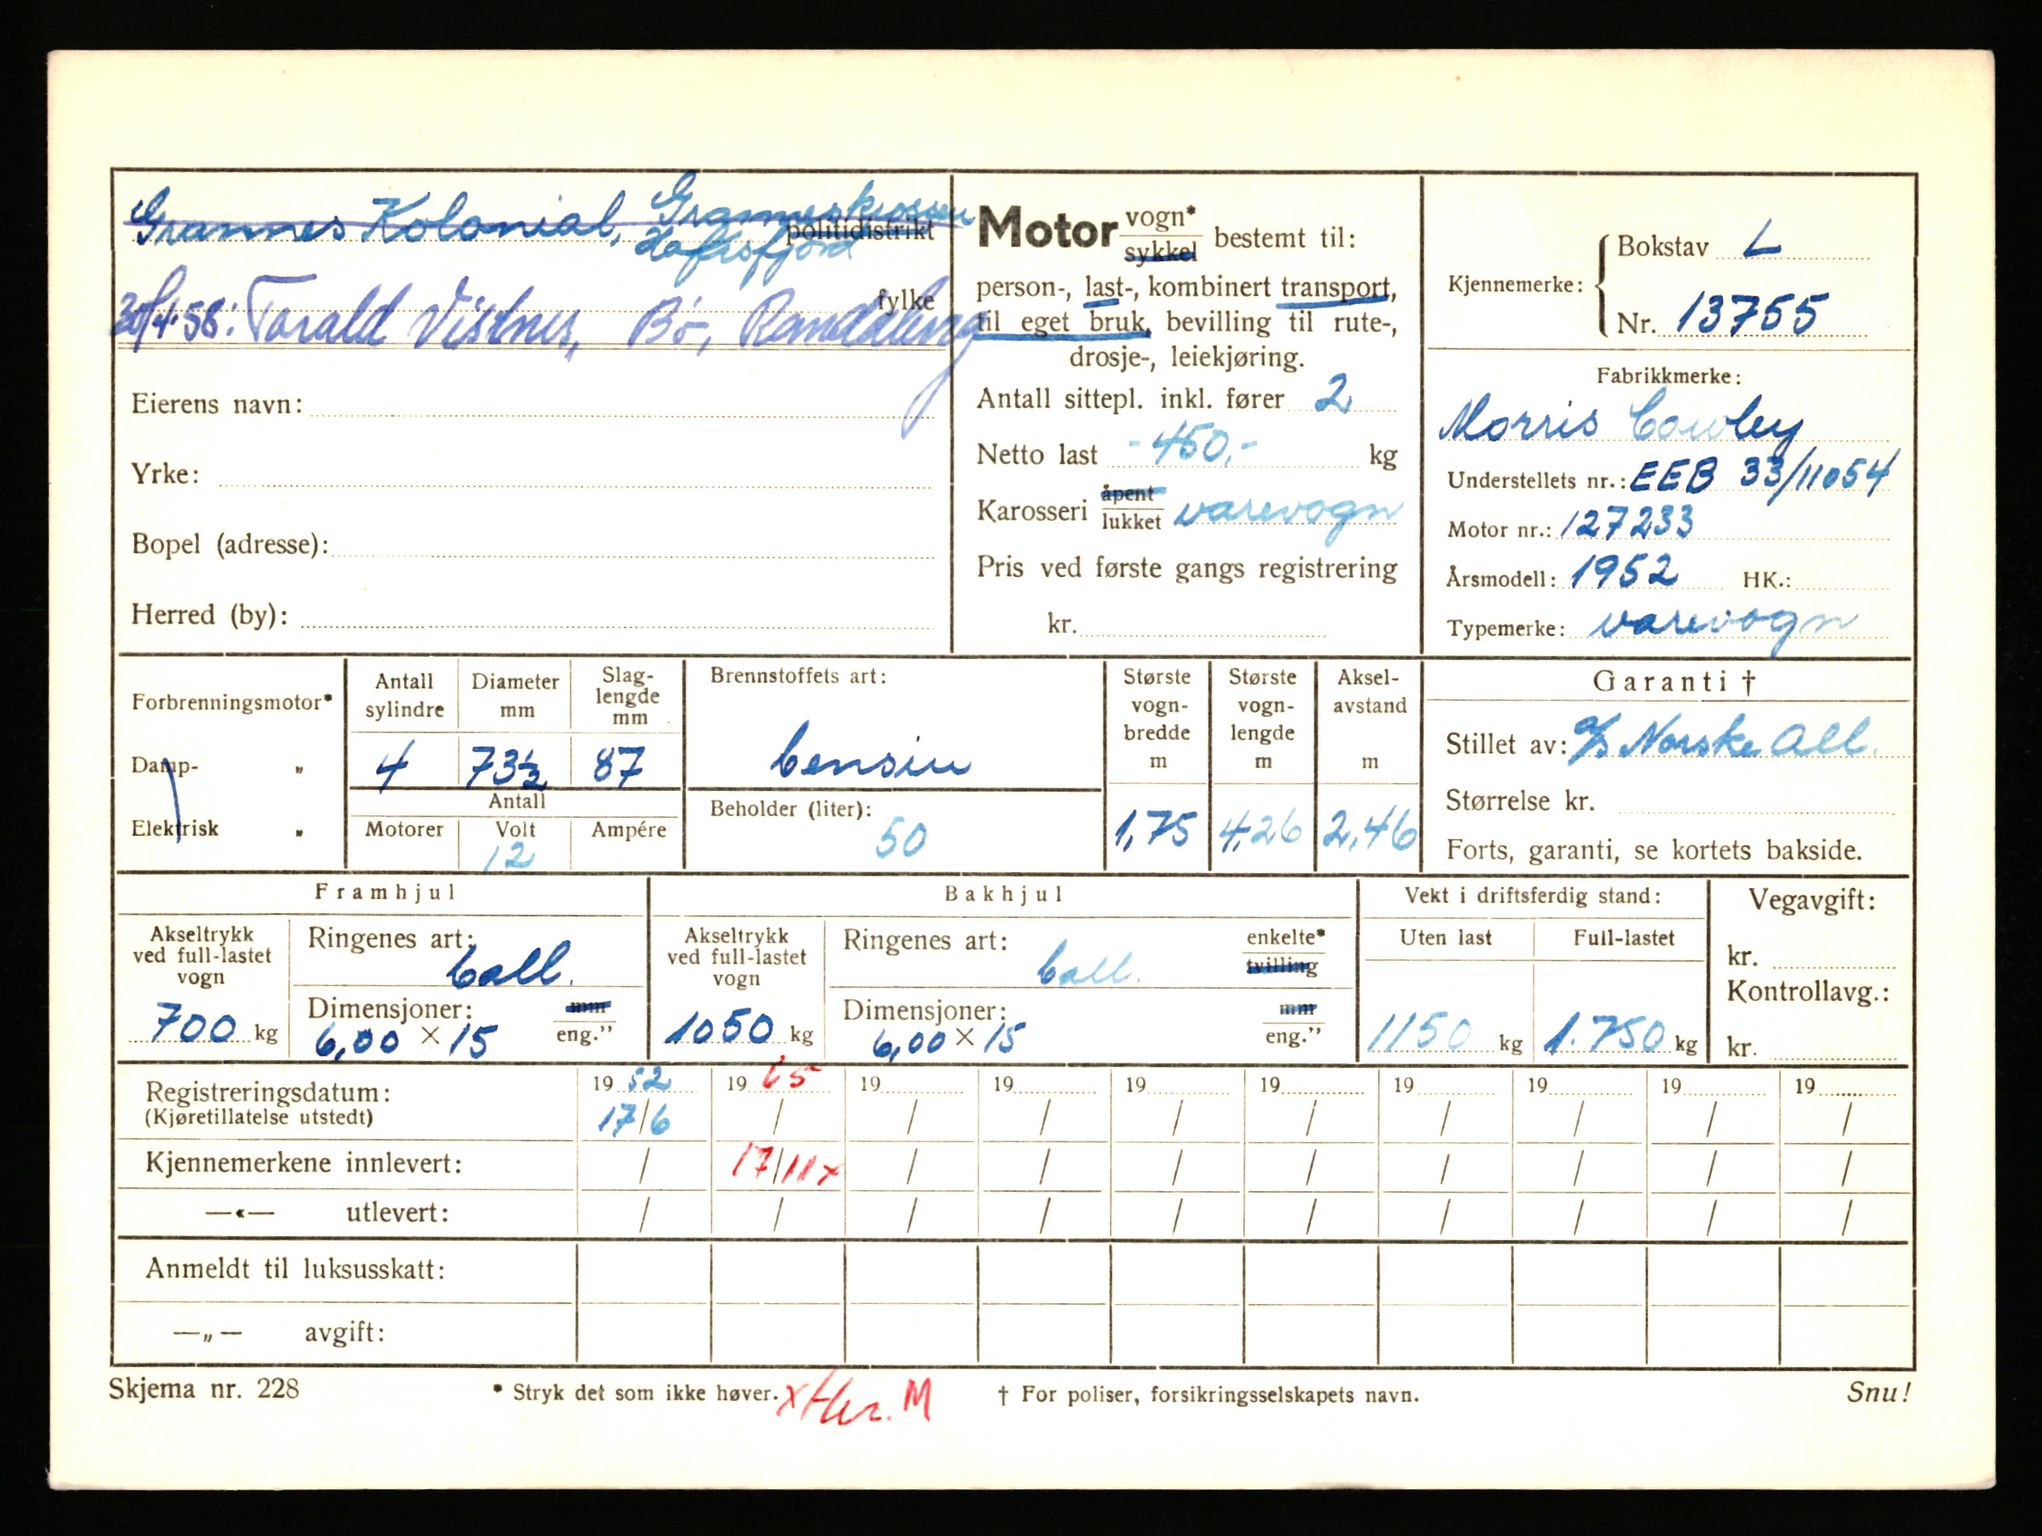 Grannes Kolonial, Granneskrossen
Hafrsfjord politidistrikt
fylke
30/4-58: Tarald Vistnes, Bø, Randaberg
Eierens navn:
Yrke:
Bopel (adresse):
Herred (by):
Motor vogn* sykkel bestemt til:
person-, last-, kombinert transport,
til eget bruk, bevilling til rute-,
drosje-, leiekjøring.
Antall sittepl. inkl. fører 2
Netto last - 450,- kg
Karosseri åpent lukket varevogn
Pris ved første gangs registrering
kr.
Kjennemerke: Bokstav L
Nr. 13755
Fabrikkmerke:
Morris Cowley
Understellets nr.: EEB 33/11054
Motor nr.: 127233
Årsmodell: 1952 HK.:
Typemerke: varevogn
Forbrenningsmotor*
Damp- „
Elektrisk „
Antall sylindre 4
Diameter mm 73½
Slaglengde mm 87
Antall
Motorer Volt Ampére
12
Brennstoffets art:
bensin
Beholder (liter):
50
Største vogn-bredde m 1,75
Største vogn-lengde m 4,26
Aksel-avstand m 2,46
Garanti †
Stillet av: A/S Norske All.
Størrelse kr.
Forts, garanti, se kortets bakside.
Framhjul
Akseltrykk ved full-lastet vogn
700 kg
Ringenes art: ball.
Dimensjoner: mm
6,00 × 15 eng.”
Bakhjul
Akseltrykk ved full-lastet vogn
1050 kg
Ringenes art: ball. enkelte* tvilling
Dimensjoner: mm
6,00 × 15 eng.”
Vekt i driftsferdig stand:
Uten last Full-lastet
1150 kg 1.750 kg
Vegavgift:
kr.
Kontrollavg.:
kr.
Registreringsdatum: 19 52 19 65 19 19 19 19 19 19 19 19
(Kjøretillatelse utstedt) 17/6 / / / / / / / / /
Kjennemerkene innlevert: / 17/11 x / / / / / / / /
—«— utlevert: / / / / / / / / / /
Anmeldt til luksusskatt:
—„— avgift:
Skjema nr. 228 * Stryk det som ikke høver. x Her. M † For poliser, forsikringsselskapets navn. Snu!